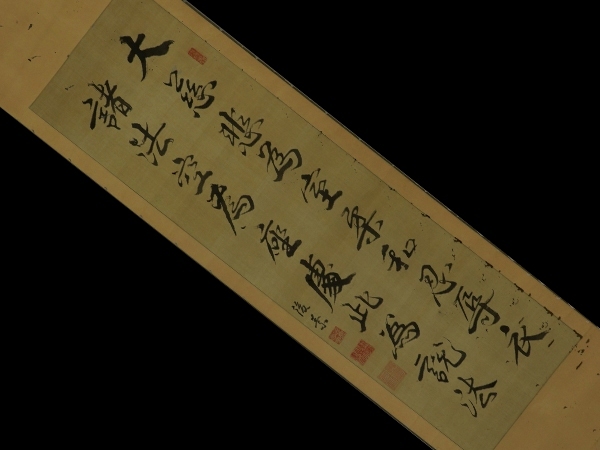 大慈悲為室柔和忍辱衣
諸法空為座處此為説法